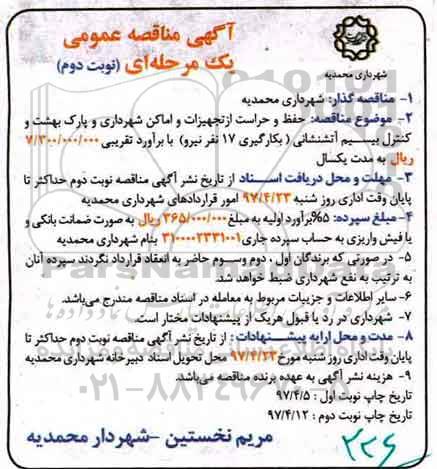 آگهی مناقصه عمومی
یک مرحله‌ای (نوبت دوم)
شهرداری محمدیه
۱- مناقصه گذار: شهرداری محمدیه
۲- موضوع مناقصه: حفظ و حراست ازتجهیزات و اماکن شهرداری و پارک بهشت و
کنترل بیسیم آتشنشانی ( بکارگیری ۱۷ نفر نیرو) با برآورد تقریبی ۷/۳۰۰/۰۰۰/۰۰۰
ریال به مدت یکسال
۳- مهلت و محل دریافت اسناد از تاریخ نشر آگهی مناقصه نوبت دوم حداکثر تا
پایان وقت اداری روز شنبه ۹۷/۴/۲۳ امور قراردادهای شهرداری محمدیه
۴- مبلغ سپرده: ۵%برآورد اولیه به مبلغ ۳۶۵/۰۰۰/۰۰۰ ریال به صورت ضمانت بانکی و
یا فیش واریزی به حساب سپرده جاری ۳۱۰۰۰۰۲۳۳۱۰۰۱ بنام شهرداری محمدیه
۵- در صورتی که برندگان اول ، دوم وسوم حاضر به انعقاد قرارداد نگردند سپرده آنان
به ترتیب به نفع شهرداری ضبط خواهد شد.
۶- سایر اطلاعات و جزییات مربوط به معامله در اسناد مناقصه مندرج می‌باشد.
۷- شهرداری در رد یا قبول هریک از پیشنهادات مختار است.
۸- مدت و محل ارایه پیشنهادات : از تاریخ نشر آگهی مناقصه نوبت دوم حداکثر تا
پایان وقت اداری روز شنبه مورخ ۹۷/۴/۲۳ محل تحویل اسناد دبیرخانه شهرداری محمدیه
۹- هزینه نشر آگهی به عهده برنده مناقصه می‌باشد.
تاریخ چاپ نوبت اول : ۹۷/۴/۵
تاریخ چاپ نوبت دوم : ۹۷/۴/۱۲
مریم نخستین -شهردار محمدیه
۲۲۶
ParsNamadData